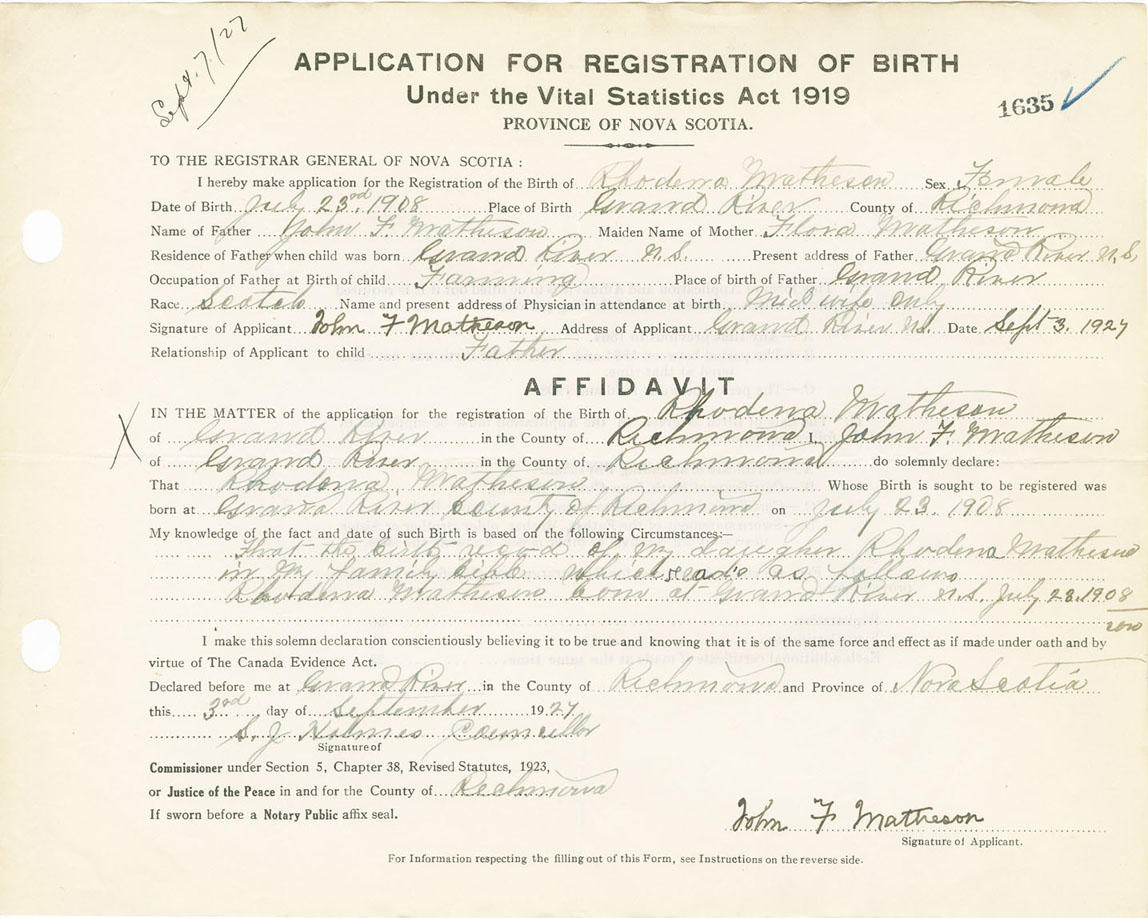 Sept. 7/27
APPLICATION FOR REGISTRATION OF BIRTH
Under the Vital Statistics Act 1919
1635
PROVINCE OF NOVA SCOTIA.
TO THE REGISTRAR GENERAL OF NOVA SCOTIA :
I hereby make application for the Registration of the Birth of Rhodena Matheson Sex Female
Date of Birth July 23rd, 1908 Place of Birth Grand River County of Richmond
Name of Father John F. Matheson Maiden Name of Mother Flora Matheson
Residence of Father when child was born Grand River N.S. Present address of Father Grand River N.S.
Occupation of Father at Birth of child Farming Place of birth of Father Grand River
Race Scotch Name and present address of Physician in attendance at birth. Mid wife only
Signature of Applicant John F Matheson Address of Applicant Grand River N.S. Date Sept 3. 1927
Relationship of Applicant to child Father
AFFIDAVIT
X IN THE MATTER of the application for the registration of the Birth of Rhodena Matheson
of Grand River in the County of Richmond I, John F. Matheson
of Grand River in the County of Richmond do solemnly declare:
That Rhodena Matheson Whose Birth is sought to be registered was
born at Grand River County of Richmond on July 23. 1908
My knowledge of the fact and date of such Birth is based on the following Circumstances:—
That the birth record of my daugher Rhodena Matheson
in my family bible which reads as follows
Rhodena Matheson born at Grand River N.S. July 23. 1908
I make this solemn declaration conscientiously believing it to be true and knowing that it is of the same force and effect as if made under oath and by
virtue of The Canada Evidence Act.
Declared before me at Grand River in the County of Richmond and Province of Nova Scotia
this 3rd day of September 1927
S. J Holmes Councillor
Signature of
Commissioner under Section 5, Chapter 38, Revised Statutes, 1923,
or Justice of the Peace in and for the County of Richmond
If sworn before a Notary Public affix seal.
John F Matheson
Signature of Applicant.
For Information respecting the filling out of this Form, see Instructions on the reverse side.